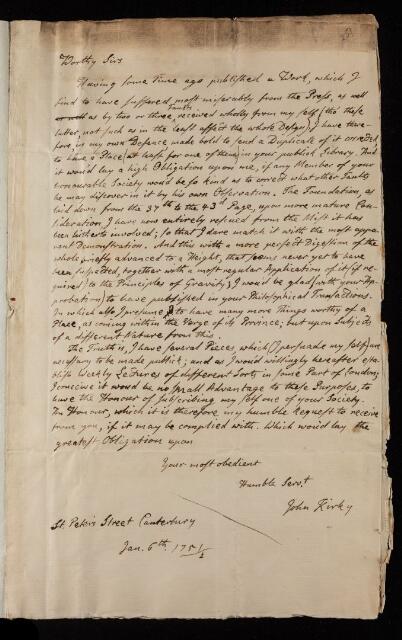 Worthy Sirs
Having some time ago published a Work, which I
find to have suffered most miserably from the Press, as well
as well as by two or three Faults, received wholey from my self (tho' these
latter, not such as in the least affect the whole Design) I have there-
fore, in my own Defence made bold to send a Duplicate of it corrected
to have a Place, at least for one of them, in your publick Library. And
it would lay a high Obligation upon me, if any Member of your
honourable Society would be so kind as to correct what other Faults
he may discover in it by his own Observation. The Foundation, as
laid down from the 37th to the 43d Page, upon more mature Con-
sideration I have now entirely rescued from the Mist it has
been hitherto involved; so that I dare match it with the most appa-
rent Demonstration. And this with a more perfect Digestion of the
whole, briefly advanced to a Height, that seems never yet to have
been suspected, together with a most regular Application of it (if re-
quired) to the Principles of Gravity, I would be glad (with your Ap-
probation) to have published in your Philosophical Transactions.
In which also I presume, to have many more Things worthy of a
Place, as coming within the Verge of its Province; but upon Subjects
of a different Nature from this.
The Truth is, I have several Pieces, which (I perswade my self) are
necessary to be made publick; and as I would willingly hereafter esta-
blish Weekly Lectures of different Sorts, in some Part of London;
I conceive it would be no small Advantage to these Purposes, to
have the Honour of subscribing my self one of your Society.
An Honour, which it is therefore my humble Request to receive
from you, if it may be complied with. Which would lay the
greatest Obligation upon
Your most obedient
Humble Servt
John Kirky
St. Peter's Street Canterbury
Jan. 6th. 175½